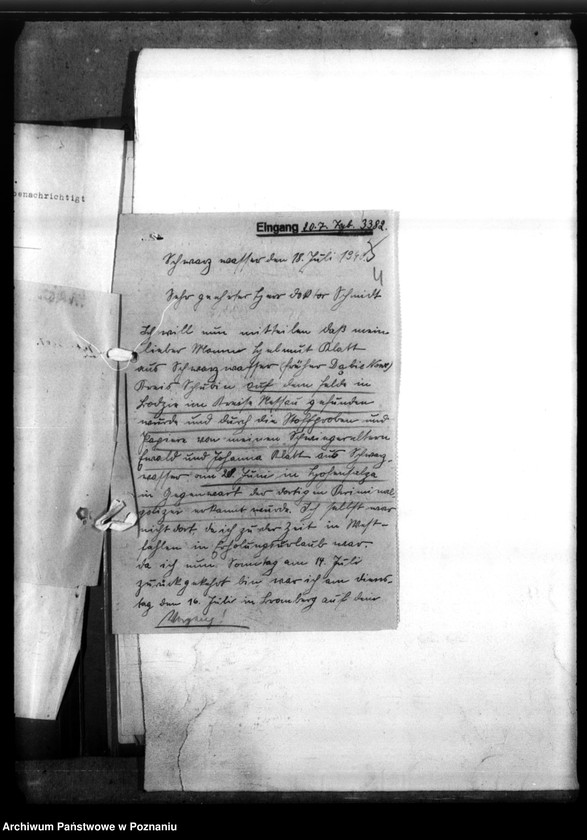 benachrichtigt
Eingang 20.7. Tgb. 3382.
Schwarzwasser den 18. Juli 1940
4
Sehr geehrter Herr Doktor Schmidt
Ich will nun mitteilen daß mein
lieber Mann Helmut Klatt
aus Schwarzwasser (früher
Kreis Schubin auf dem Felde in
im Kreise Nessau gefunden
wurde und durch die Stoffproben und
Papiere von meinen Schwiegereltern
Ewald und Johanna Klatt aus Schwarz-
wasser am Juni in Hohensalza
in Gegenwart der dortigen Kriminal-
polizei erkannt wurde. Ich selbst war
nicht dort, da ich zu der Zeit in West-
fahlen in Erholungsurlaub war.
Da ich nun Sonntag am 14. Juli
zurückgekehrt bin war ich am Diens-
tag den 16. Juli in Bromberg auf dem
Archiwum Państwowe w Poznaniu